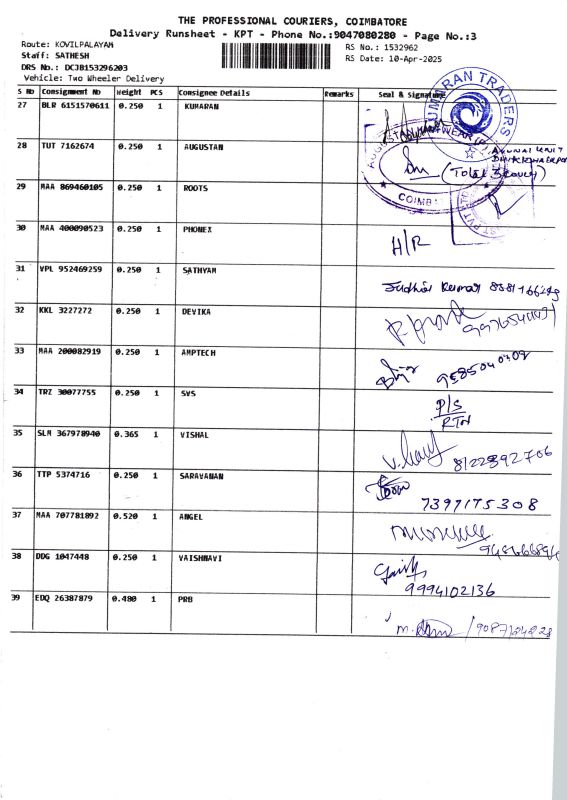 THE PROFESSIONAL COURIERS, COIMBATORE
Delivery Runsheet - KPT - Phone No.:9047080280 - Page No.:3
Route: KOVILPALAYAM RS No.: 1532962
Staff: SATHESH RS Date: 10-Apr-2025
DRS No.: DC3B153296203
Vehicle: Two Wheeler Delivery
S No Consignment No Weight PCS Consignee Details Remarks Seal & Signature
27 BLR 6151570611 0.250 1 KUMARAN
KUMARAN TRADERS
28 TUT 7162674 0.250 1 AUGUSTAN
(Total 3 cover)
29 MAA 869460105 0.250 1 ROOTS
COIMB
30 MAA 400090523 0.250 1 PHONEX H/R
31 VPL 952469259 0.250 1 SATHYAM
32 KKL 3227272 0.250 1 DEVIKA
33 MAA 200082919 0.250 1 AMPTECH 9585040302
34 TRZ 30077755 0.250 1 SVS P/S
RTN
35 SLM 367978940 0.365 1 VISHAL 8122892706
36 TTP 5374716 0.250 1 SARAVANAN 7397175308
37 MAA 707781892 0.520 1 ANGEL
38 DDG 1047448 0.250 1 VAISHNAVI 9994102136
39 EDQ 26387879 0.480 1 PRB